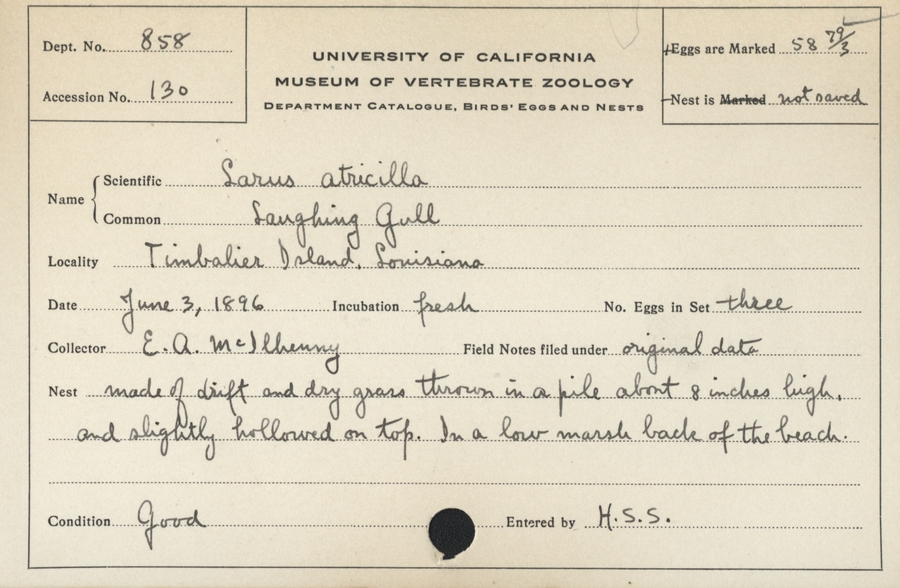 Dept. No. 858
Accession No. 130
UNIVERSITY OF CALIFORNIA
MUSEUM OF VERTEBRATE ZOOLOGY
DEPARTMENT CATALOGUE, BIRDS' EGGS AND NESTS
Eggs are Marked 58 79/3
Nest is Marked not saved
Name
Scientific Larus atricilla
Common Laughing Gull
Locality Timbalier Island, Louisiana
Date June 3, 1896 Incubation fresh No. Eggs in Set three
Collector E. A. McIlhenny Field Notes filed under original data
Nest made of drift and dry grass thrown in a pile about 8 inches high,
and slightly hollowed on top. In a low marsh back of the beach.
Condition Good Entered by H.S.S.